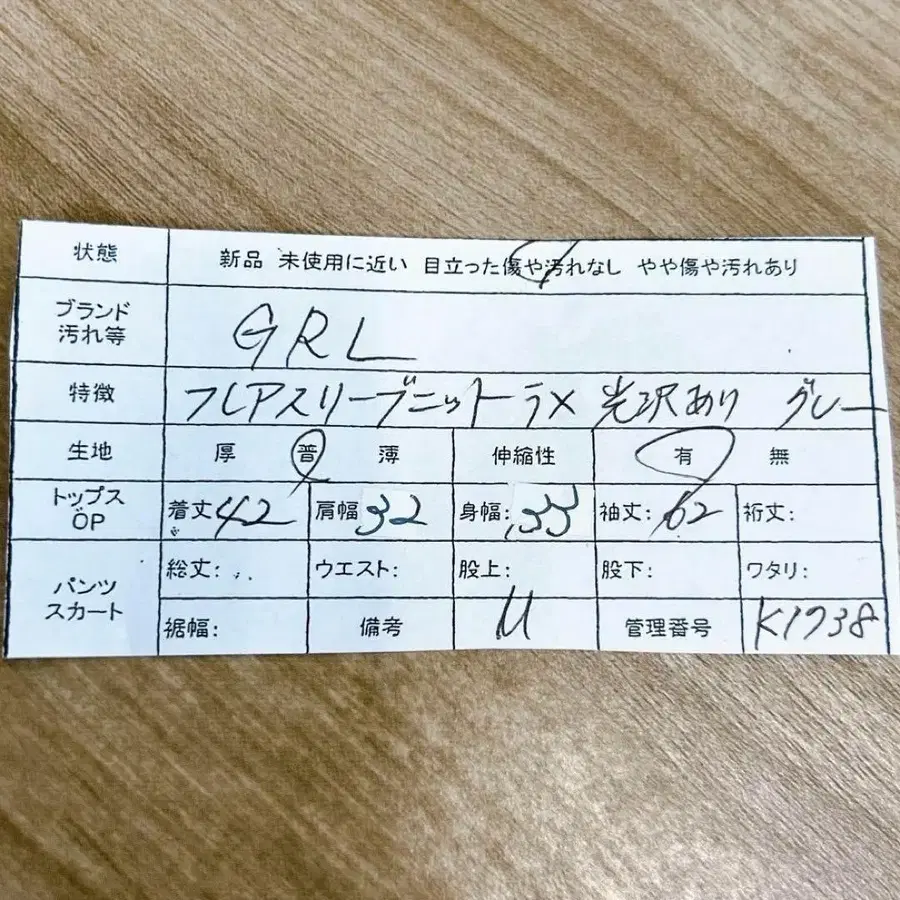 状態 新品 未使用に近い 目立った傷や汚れなし やや傷や汚れあり
ブランド
汚れ等 GRL
特徴 フレアスリーブニット ラメ 光沢あり グレー
生地 厚 普 薄 伸縮性 有 無
トップス
OP 着丈 42 肩幅 32 身幅: 33 袖丈: 62 裄丈:
パンツ
スカート 総丈: ウエスト: 股上: 股下: ワタリ:
裾幅: 備考 U 管理番号 K1738